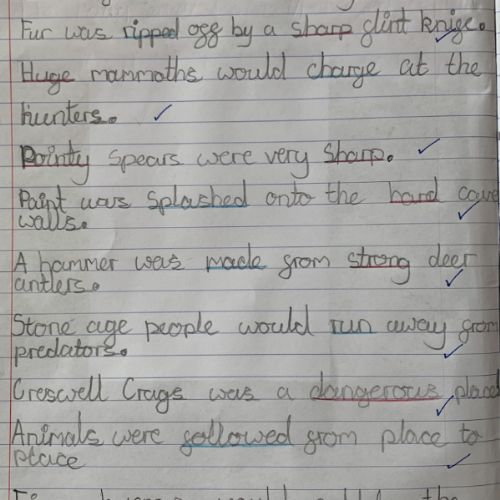 Fur was ripped off by a sharp flint knife.
Huge mammoths would charge at the
hunters.
Pointy spears were very sharp.
Paint was splashed onto the hard cave
walls.
A hammer was made from strong deer
antlers.
Stone age people would run away from
predators.
Creswell Crags was a dangerous place
Animals were followed from place to
place